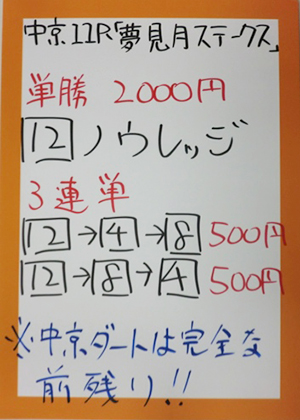 中京11R「夢見月ステークス」
単勝 2000円
12 ノウレッジ
3連単
12→4→8 500円
12→8→4 500円
※中京ダートは完全な
前残り!!